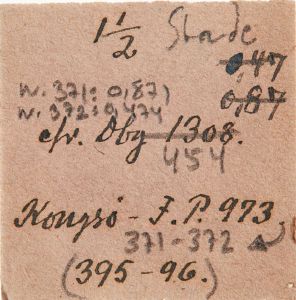 1 1/2 Stade
0,47
N. 371: 0,87)
0,87
N. 372: 0,474
cfr. Dbg 1308.
454
Kongsö - F.P. 973.
371-372
(395-96.)